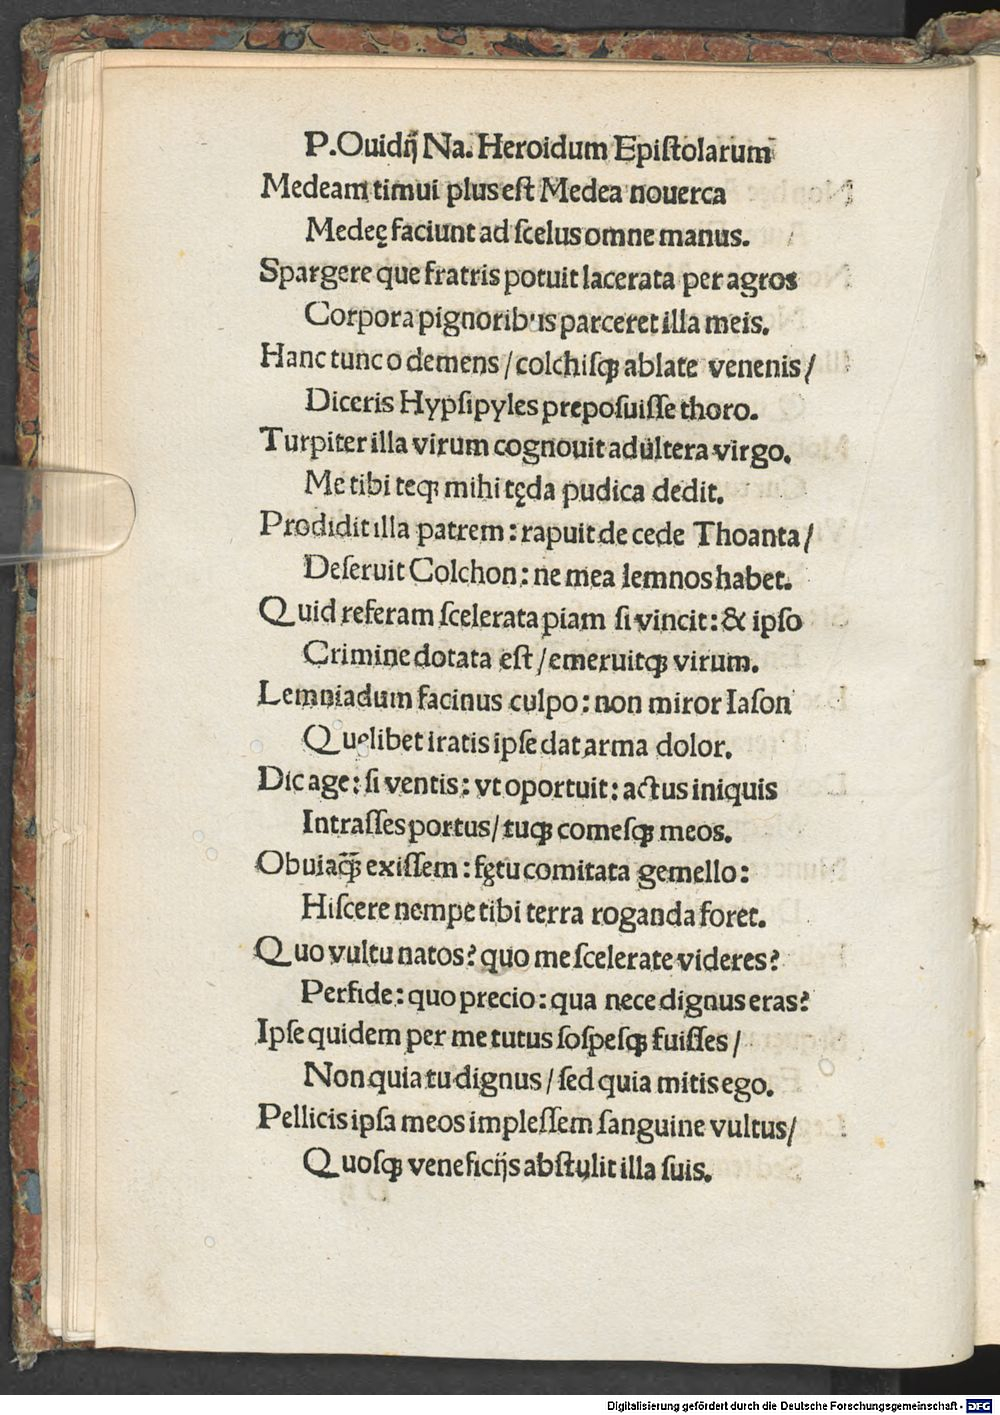 P.Ouidij Na. Heroidum Epiſtolarum
Medeam timui plus eſt Medea nouerca
Medeę faciunt ad ſcelus omne manus.
Spargere que fratris potuit lacerata per agros
Corpora pignoribus parceret illa meis.
Hanc tunc o demens / colchiſqꝫ ablate venenis /
Diceris Hypſipyles prepoſuiſſe thoro.
Turpiter illa virum cognouit adultera virgo.
Me tibi teqꝫ mihi tęda pudica dedit.
Prodidit illa patrem : rapuit de cede Thoanta /
Deſeruit Colchon : ne mea lemnos habet.
Quid referam ſcelerata piam ſi vincit : & ipſo
Crimine dotata eſt / emeruitqꝫ virum.
Lemniadum facinus culpo : non miror Iaſon
Quelibet iratis ipſe dat arma dolor.
Dic age : ſi ventis : vt oportuit : actus iniquis
Intraſſes portus / tuqꝫ comeſqꝫ meos.
Obuiaqꝫ̃ exiſſem : fętu comitata gemello :
Hiſcere nempe tibi terra roganda foret.
Quo vultu natos? quo me ſcelerate videres?
Perfide : quo precio : qua nece dignus eras?
Ipſe quidem per me tutus ſoſpeſqꝫ fuiſſes /
Non quia tu dignus / ſed quia mitis ego.
Pellicis ipſa meos impleſſem ſanguine vultus /
Quoſqꝫ veneficijs abſtulit illa ſuis.
Digitalisierung gefördert durch die Deutsche Forschungsgemeinschaft - DFG